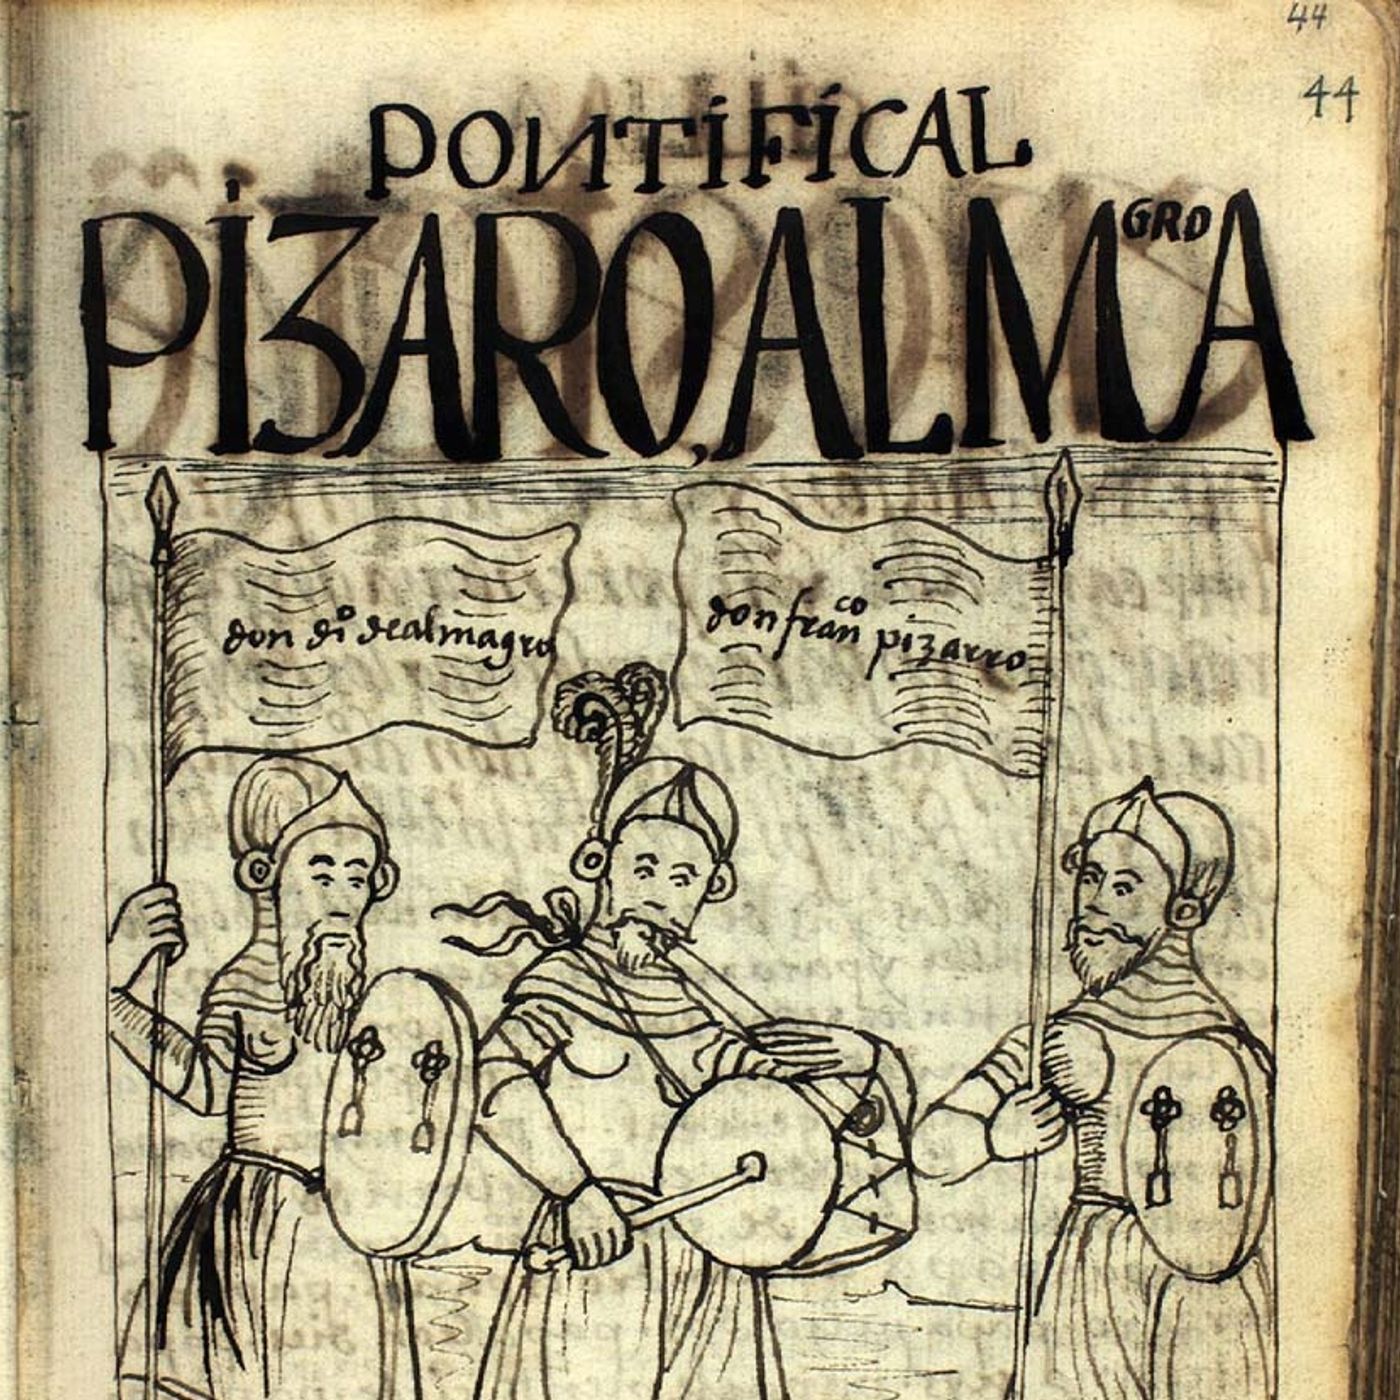 44
44
PONTIFICAL
PIZARO, ALMAGRO
don di° de almagro
don fran^co pizarro